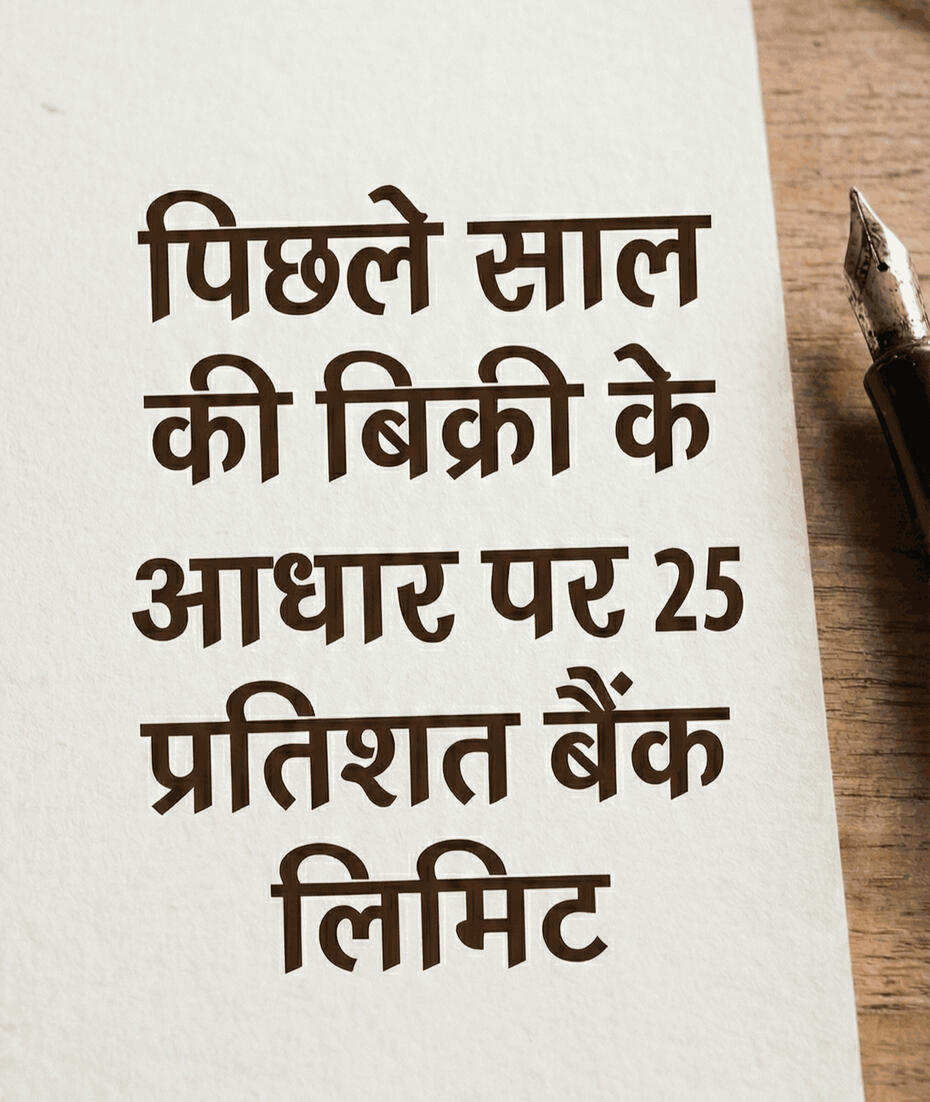 पिछले साल
की बिक्री के
आधार पर 25
प्रतिशत बैंक
लिमिट